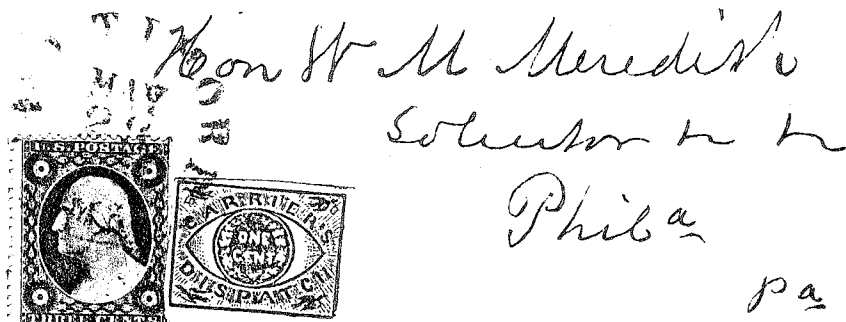 Hon W M Meredith
Solicitor &c &c
Phil a
pa
U.S. POSTAGE
THREE CENTS
CARRIERS
ONE
CENT
DISPATCH